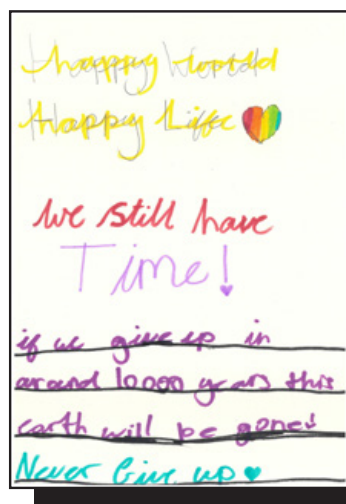 Happy World
Happy Life
We still have
Time!
if we give up in
around 10000 years this
earth will be gone!
Never Give up